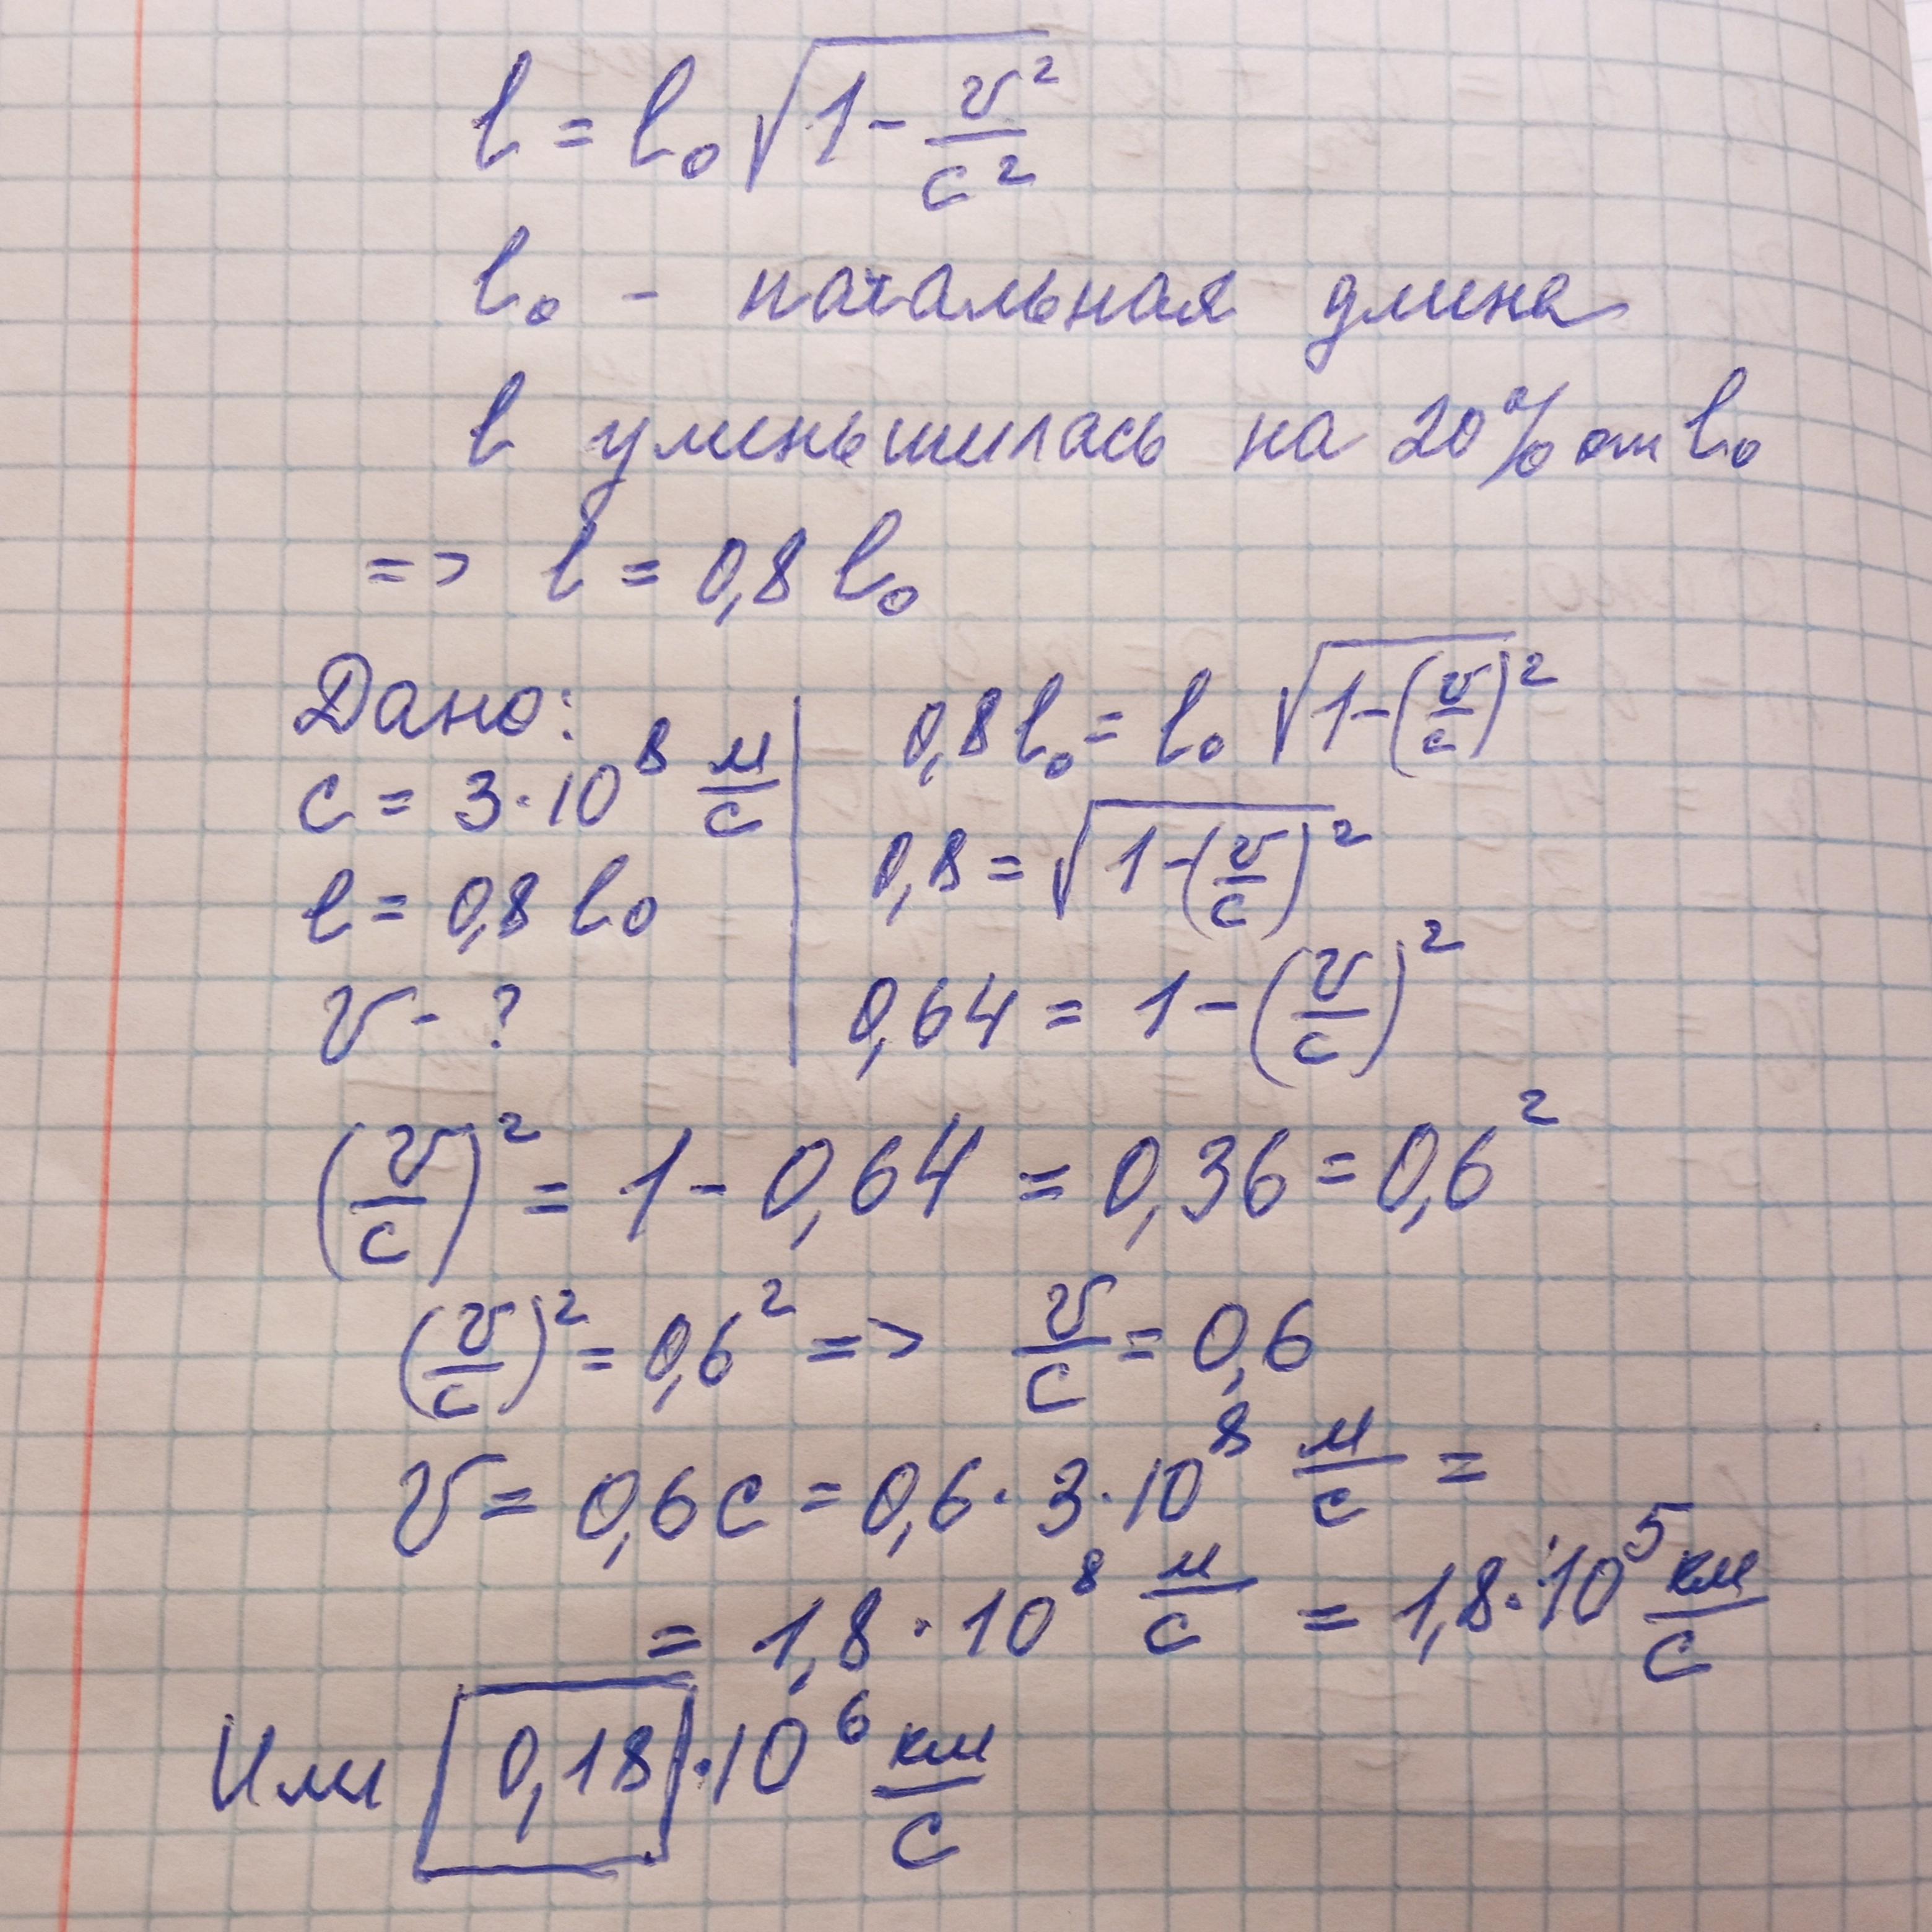 l = l₀ √(1 - v²/c²)
l₀ - начальная длина
l уменьшилась на 20% от l₀
=> l = 0,8 l₀
Дано:
c = 3·10⁸ м/с
l = 0,8 l₀
v - ?
0,8 l₀ = l₀ √(1-(v/c)²)
0,8 = √(1-(v/c)²)
0,64 = 1 - (v/c)²
(v/c)² = 1 - 0,64 = 0,36 = 0,6²
(v/c)² = 0,6² => v/c = 0,6
v = 0,6c = 0,6 · 3 · 10⁸ м/с =
= 1,8 · 10⁸ м/с = 1,8 · 10⁵ км/с
Или 0,18 · 10⁶ км/с